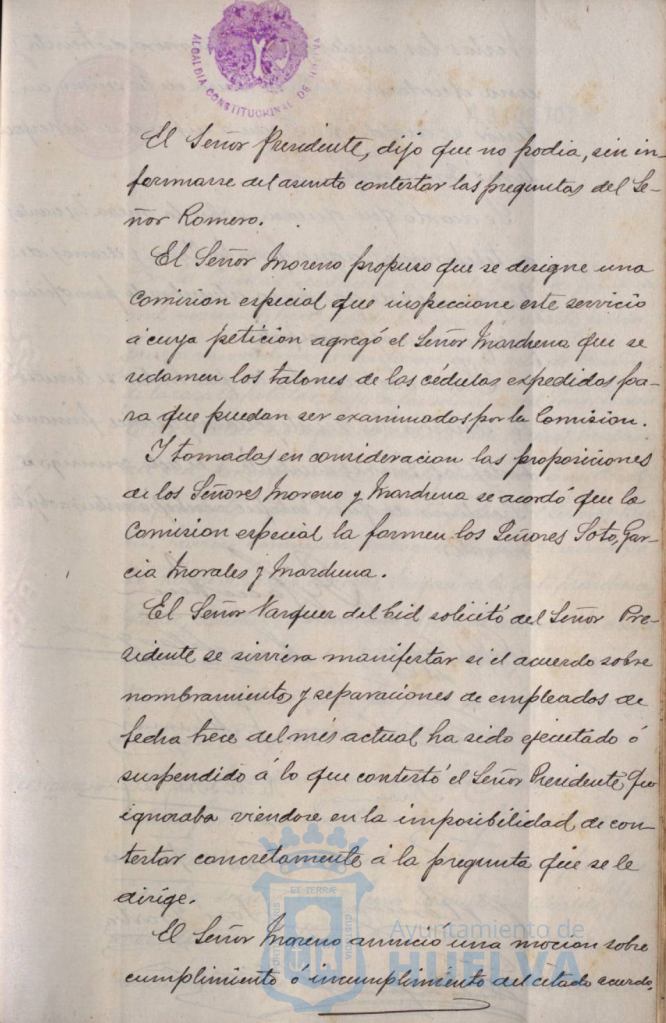 ALCALDIA CONSTITUCIONAL DE HUELVA
El Señor Presidente, dijo que no podia, sin in-
formarse del asunto contestar las preguntas del Se-
ñor Romero.
El Señor Moreno propuso que se designe una
Comision especial que inspeccione este servicio
á cuya peticion agregó el Señor Marchena que se
reclamen los talones de las cédulas expedidas pa-
ra que puedan ser examinados por la Comision.
Y tomadas en consideracion las proposiciones
de los Señores Moreno y Marchena se acordó que la
Comision especial la formen los Señores Soto, Gar-
cia Morales y Marchena.
El Señor Vazquez del Cid solicitó del Señor Pre-
sidente se sirviera manifestar si el acuerdo sobre
nombramiento y separaciones de empleados de
fecha trece del mes actual ha sido ejecutado ó
suspendido á lo que contestó el Señor Presidente, que
ignoraba viendose en la imposibilidad de con-
testar concretamente á la pregunta que se le
dirige.
El Señor Moreno anunció una mocion sobre
cumplimiento ó incumplimiento del citado acuerdo.
Ayuntamiento de
HUELVA